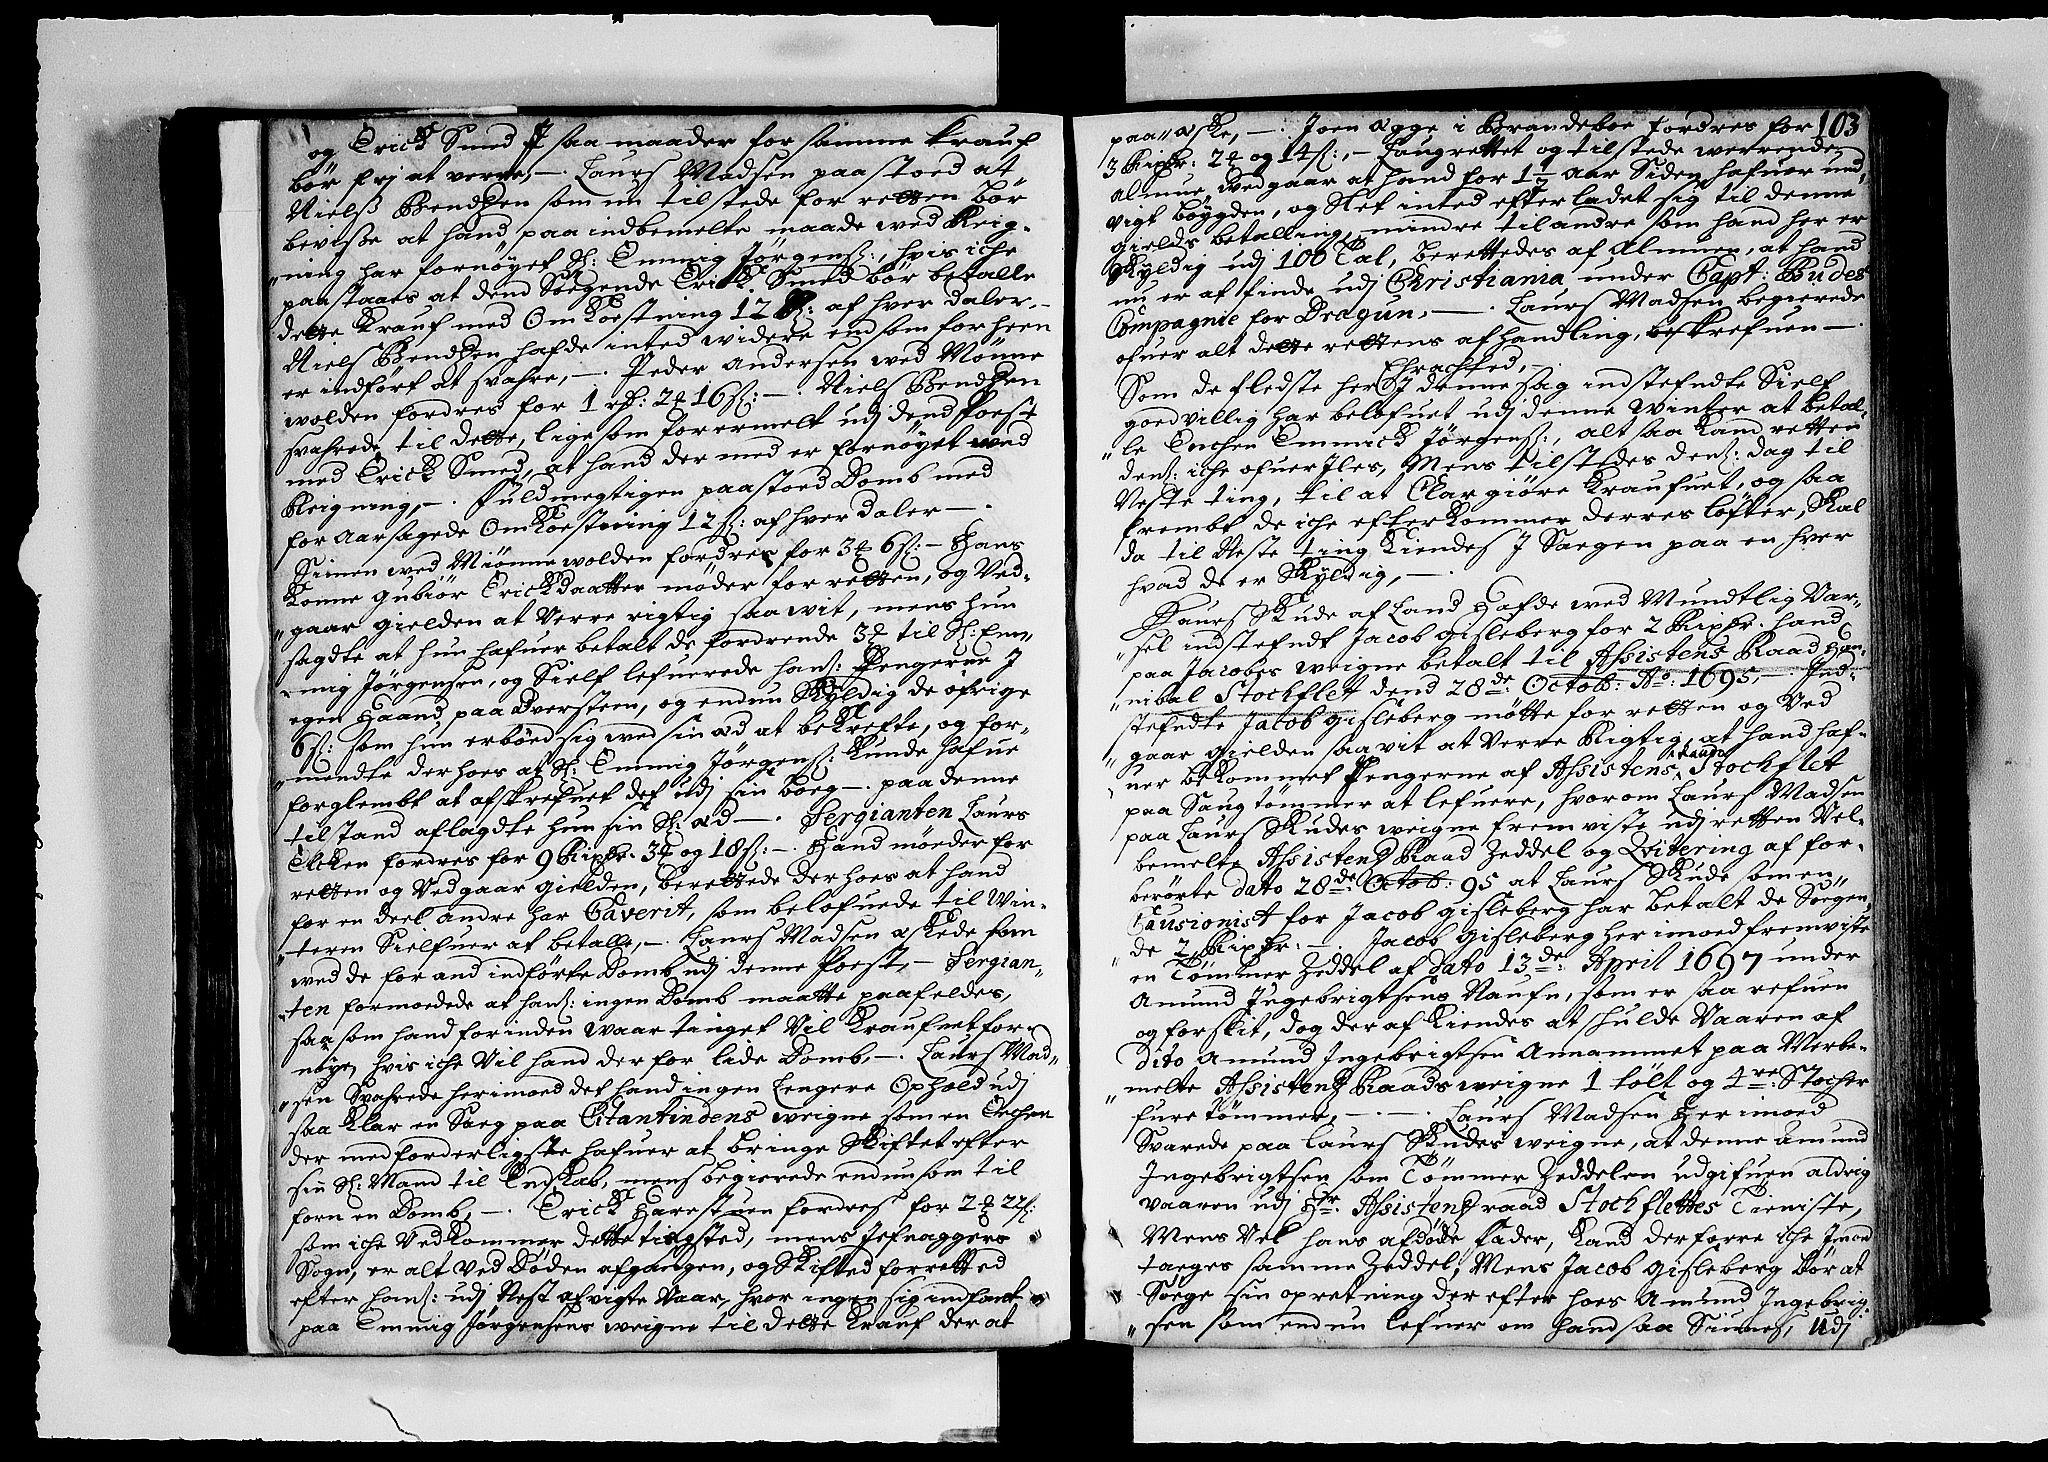 og Erick Smed J saa maader for samme krauf
bør frj at verre, —. Laurs Madsen paastoed at
Nielß Bendßen som nu tilstede for retten bør
bevisße at hand paa indbemelte maade ved Reig-
„ning har fornøyet Sl: Emmig Jørgens:, hvis iche
paastaaes at dend Søgende Erick Smed bør betalle
dette krauf med Omkoestning 12 ß: af hver daler. —
Niels Bendßen hafde inted widere end som forhen
er indført at svahre, —. Peder Andersen ved Mønne
wolden fordres for 1 rd: 2 ꝗ 16 ß: —. Niels Bendßen
svahrede til dette, lige som forermelt udj dend Poest
med Erick Smed, at hand der med er fornøyet ved
Reigning, —. Fuldmegtigen paastoed Domb med
for aarsagede Omkoestning 12 ß: af hver daler —.
Simen wed Miønnewolden fordres for 3 ꝗ 6 ß: — Hans
Konne Gubiør Erichdaatter møder for retten, og Ved-
„gaar gielden at Verre rigtig saa wit, mens hun
sagdte at hun hafuer betalt de fordrende 3 ꝗ til Sl: Em-
„mig Jørgensen, og Sielf lefuerede hans: Pengerne J
egen Haand, paa Dversteen, og endnu Skyldig de øfrige
6 ß: som hun erbøed sig wed sin æd at bekrefte, og for-
„mendte derhoes at Sl: Emmig Jørgens: kunde hafue
forglembt at afskrefuet det udj sin boeg —. paa denne
tilstand aflagdte hun sin Sl: æd —. Sergianten Laurs
Ecken fordres for 9 Rixdr. 3 ꝗ og 18 ß: —. Hand møeder for
retten og Vedgaar gielden, berettede derhoes at hand
for en deel andre har Caverit, som belofuede til Win-
„teren Sielfuer at betalle, —. Laurs Madsen æskede som
wed de forand indførte Domb udj denne Poest, — Sergian-
„ten formoedede at hans: ingen Domb maatte paafeldes,
saa som hand for inden waartinget Vil kraufuet for-
nøye, hvis iche Vil hand derfor lide Domb, —. Laurs Mad-
„sen Svahrede herimoed det hand ingen lengere Ophold udj
saa klar en Sag paa Citantindens weigne som en Enchen
der med forderligste hafuer at bringe Skiftet efter
sin Sl: Mand til Endskab, mens begierede endnu som til
forn en Domb, —. Erick Harestuen fordres for 2 ꝗ 22 ß:
som iche Vedkommer dette tingsted, mens Jefnaggers
Sogn, er alt ved Døden afgangen, og Skifted forretted
efter hans: udj Nest afvigte Vaar, hvor ingen sig indfant
paa Emmig Jørgensens weigne til dette krauf der at
103
paa æske, —. Joen Ægge i Brandeboe fordres for
3 Rixdr: 2 ꝗ og 14 ß:, — Laugrettet og tilstede werrende
almue, Vedgaar at hand for 1½ aar Siden hafuer und-
vigt bøygden, og Slet inted efterladet sig til denne
gields betalling, mindre til andre som hand her er
Skyldig udj 100 Tal, berettedes af Almuen, at hand
nu er at finde udj Christiania under Capt: Budes
Compagnie for Dragun, —. Laurs Madsen begierede
ofuer alt dette rettens afhandling beskrefuen —.
Ehrachted, —
Som de fledste her J denne sag indstefndte Sielf
goedvillig har belofuet udj denne Winter at betal-
„le Enchen Emmick Jørgens:, alt saa kand retten
dens: iche ofuer Jles, Mens tilstedes dens: dag til
Neste ting, til at Clargiøre kraufuet, og saa
frembt de iche efterkommer derres løfter, Skal
da til Neste ting kiendes J Saegen paa en hver
hvad de er Skyldig, —.
Laurs Skude af Land Hafde wed Mundtlig Var-
„sel indstefndt Jacob Gisleberg for 2 Rixdr. hand
paa Jacobes weigne betalt til Assistens Raad Han-
„nibal Stochflet dend 28de: Octob: Ao: 1695, —. Ind-
stefndte Jacob Gisleberg møtte for retten og Ved
„gaar gielden saa vit at Verre Rigtig, at hand haf-
„uer bekommet Pengerne af Assistens raad Stochflet
paa Saugtømmer at lefuere, hvorom Laurs Madsen
paa Laurs Skudes weigne fremviste udj retten Vel-
bemelte Assistentz Raads Zeddel og Qvitering af for-
berørte dato 28de: Octob: 95 at Laurs Skude som en
Causionist for Jacob Gisleberg har betalt de Søgen-
„de 2 Rixdr: —. Jacob Gisleberg herimoed fremviste
en Tømmer Zeddel af dato 13de: April 1697 under
Amund Ingebrigtsens Naufn, som er saa refuen
og forslit, dog deraf kiendes at skulde Vaaren af
Dito Amund Ingebrigtsen Annammet paa Merbe-
„melte Assistentz Raads weigne 1 tolt og 4re: Stocher
furetømmer, —. —. Laurs Madsen Herimoed
Svarede paa Laurs Skudes weigne, at denne Amund
Ingebrigtsen som Tømmer Zeddelen udgifuen aldrig
vaaren udj Hr. Assistentz raad Stochflettes Tieniste,
Mens Vel hans afdøde Fader, kand derforre iche Jmod
taeges samme Zeddel, Mens Jacob Gisleberg bør at
Søege sin opretning der efter hoes Amund Ingebrig-
„sen som endnu lefuer om hand saa Siunes, udj